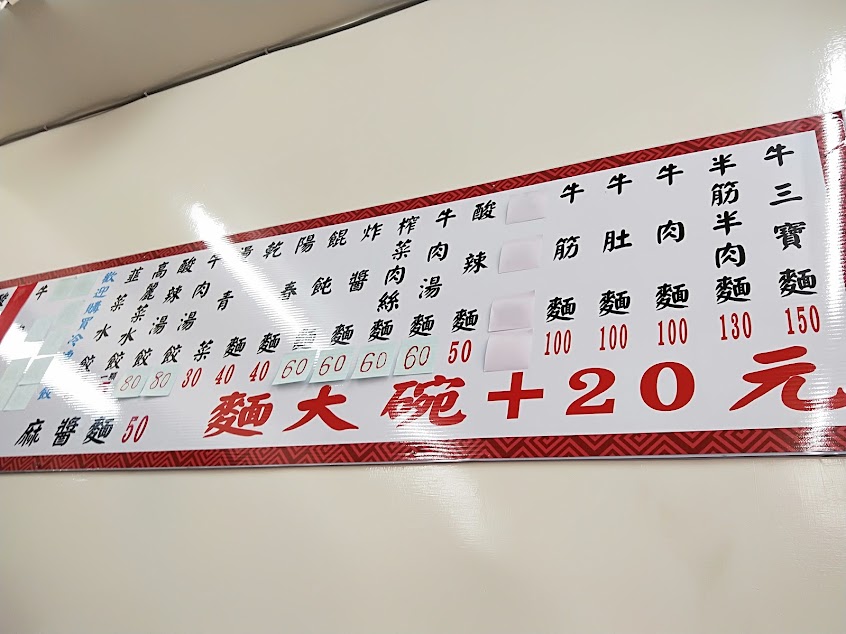 牛三寶麵 150
半筋半肉麵 130
牛肉麵 100
牛肚麵 100
牛筋麵 100
酸辣麵 50
牛肉湯麵 60
榨菜肉絲麵 60
炸醬麵 60
餛飩麵 60
陽春麵 40
乾麵 40
青菜 30
牛肉湯餃 80
酸辣湯餃 80
高麗菜水餃
韮菜水餃
歡迎購買冷
牛
麵大碗+20元
麻醬麵50